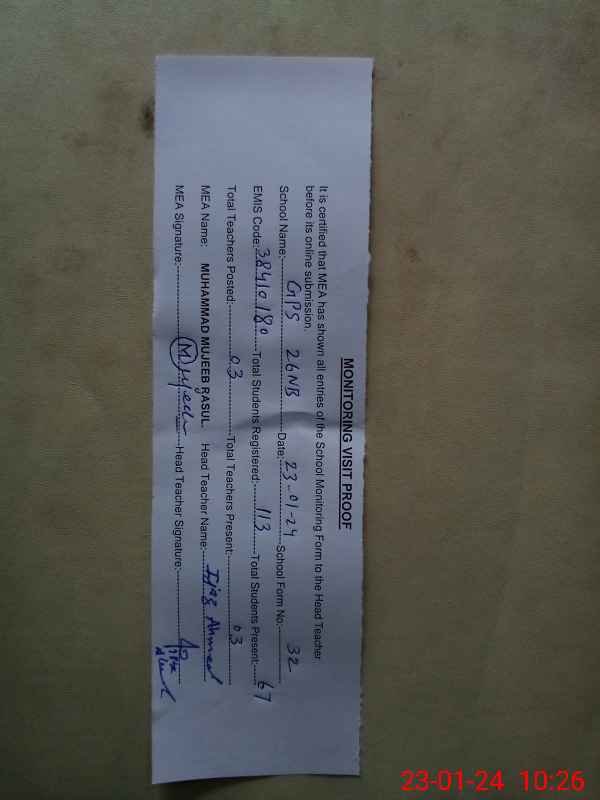 MONITORING VISIT PROOF
It is certified that MEA has shown all entries of the School Monitoring Form to the Head Teacher
before its online submission.
School Name: GPS 26NB Date: 23-01-24 School Form No: 32
EMIS Code: 38410180 Total Students Registered: 113 Total Students Present: 67
Total Teachers Posted: 03 Total Teachers Present: 03
MEA Name: MUHAMMAD MUJEEB RASUL Head Teacher Name: Ijaz Ahmed
MEA Signature: Mujeeb Head Teacher Signature:
23-01-24 10:26